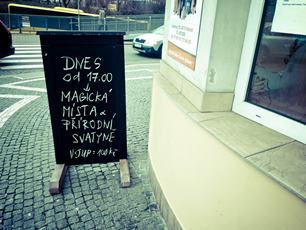 DNES
od 17.00
↓
MAGICKÁ
MÍSTA a
PŘÍRODNÍ
SVATYNĚ
VSTUP: 100 kč